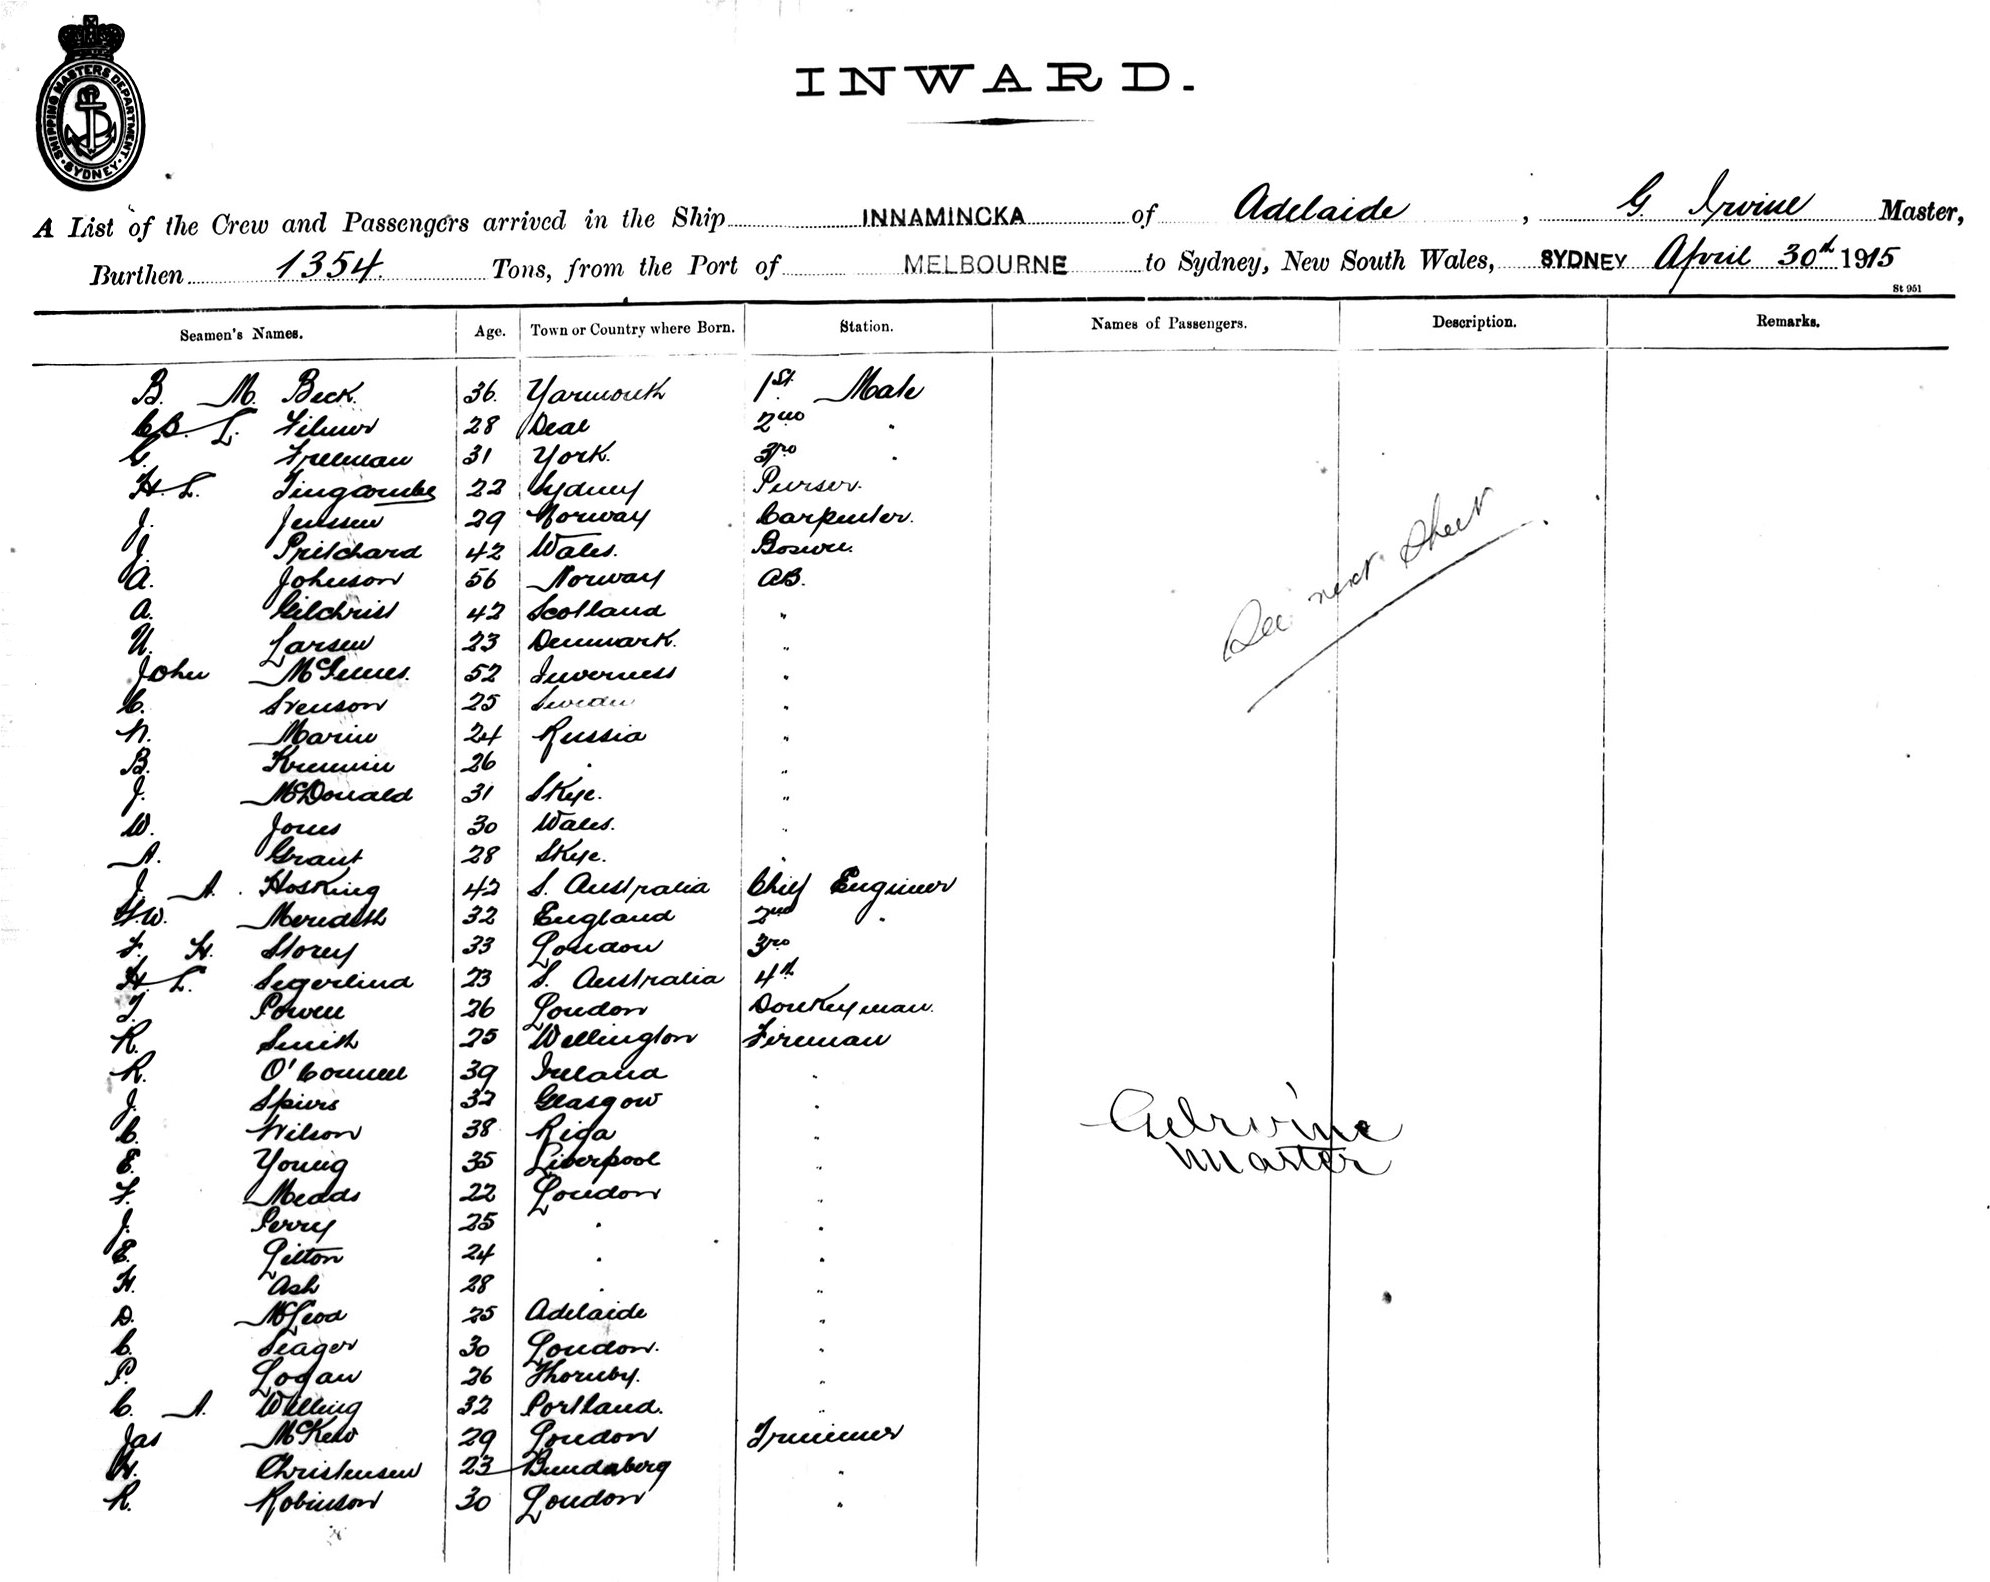 SHIPPING MASTERS DEPARTMENT · SYDNEY ·
INWARD.
A List of the Crew and Passengers arrived in the Ship INNAMINCKA of Adelaide, G. Irvine Master,
Burthen 1354 Tons, from the Port of MELBOURNE to Sydney, New South Wales, SYDNEY April 30th 1915
St 951
Seamen's Names. Age. Town or Country where Born. Station. Names of Passengers. Description. Remarks.
B. M. Beck. 36 Yarmouth 1st Mate
L. Filmer 28 Deal 2nd "
G. Freeman 31 York. 3rd "
H. L. Tingcombe 22 Sydney Purser.
J. Jenssen 29 Norway Carpenter.
J. Pritchard 42 Wales. Boswn.
A. Johnson 56 Norway AB.
A. Gilchrist 42 Scotland "
U. Larsen 23 Denmark. "
John 52 Inverness "
C. Svenson 25 Sweden "
N. Marin 24 Russia "
B. 26 " "
J. McDonald 31 Skye. "
W. Jones 30 Wales. "
A. Grant 28 Skye. "
J. A. Hosking 42 S. Australia Chief Engineer
W. Meredith 32 England 2nd "
F. H. Storey 33 London 3rd
H. L. Segerlind 23 S. Australia 4th
T. Powell 26 London Donkeyman.
R. Smith 25 Wellington Fireman
R. O'Connell 39 Ireland "
J. Spiers 32 Glasgow "
C. Wilson 38 Riga "
E. Young 35 Liverpool "
F. Meads 22 London "
J. Perry 25 " "
E. Litton 24 " "
H. Ash 28 "
D. McLeod 25 Adelaide "
C. Seager 30 London. "
P. Logan 26 Thornby. "
C. A. Willing 32 Portland. "
Jas McKew 29 London Trimmer
H. Christensen 23 Bundaberg "
R. Robinson 30 London "
See next Sheet
G Irvine
Master